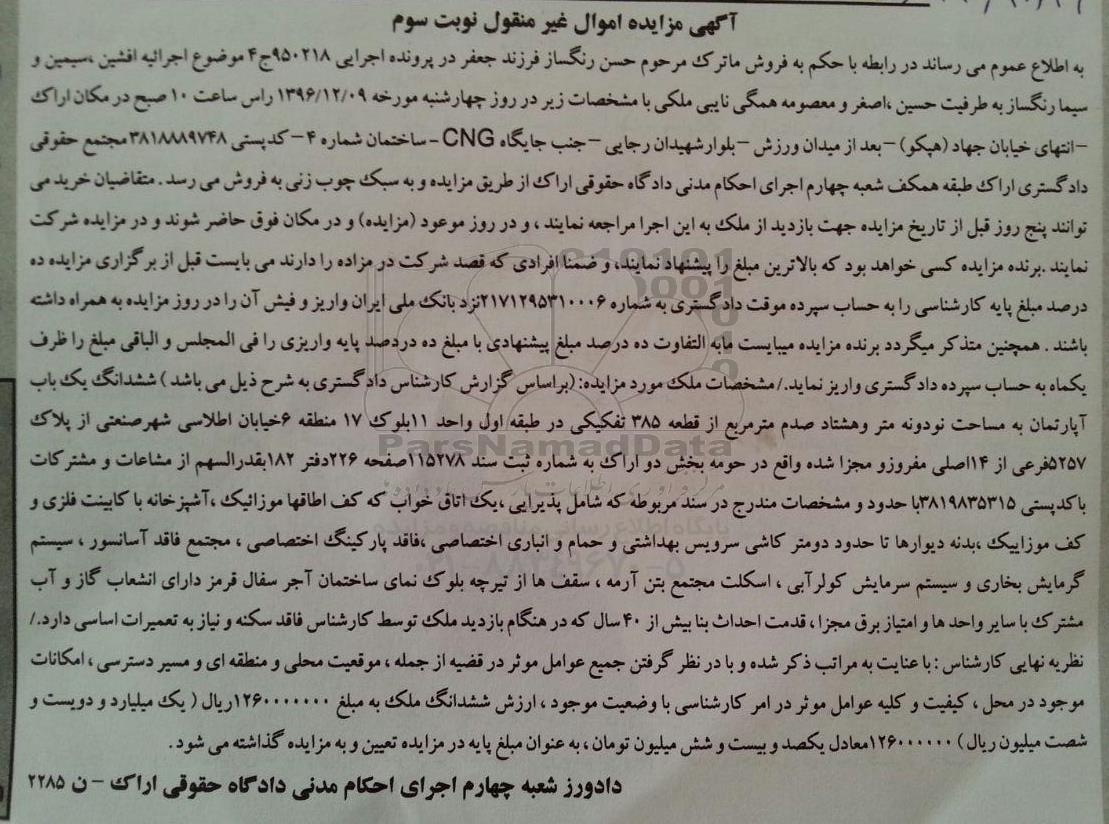 آگهی مزایده اموال غیر منقول نوبت سوم
به اطلاع عموم می رساند در رابطه با حکم به فروش ماترک مرحوم حسن رنگساز فرزند جعفر در پرونده اجرایی ۹۵۰۲۱۸ج۴ موضوع اجرائیه افشین ،سیمین و
سیما رنگساز به طرفیت حسین ،اصغر و معصومه همگی نایبی ملکی با مشخصات زیر در روز چهارشنبه مورخه ۱۳۹۶/۱۲/۰۹ راس ساعت ۱۰ صبح در مکان اراک
–انتهای خیابان جهاد (هپکو) –بعد از میدان ورزش –بلوارشهیدان رجایی –جنب جایگاه CNG – ساختمان شماره ۴ – کدپستی ۳۸۱۸۸۸۹۷۴۸ مجتمع حقوقی
دادگستری اراک طبقه همکف شعبه چهارم اجرای احکام مدنی دادگاه حقوقی اراک از طریق مزایده و به سبک چوب زنی به فروش می رسد . متقاضیان خرید می
توانند پنج روز قبل از تاریخ مزایده جهت بازدید از ملک به این اجرا مراجعه نمایند ، و در روز موعود (مزایده) و در مکان فوق حاضر شوند و در مزایده شرکت
نمایند .برنده مزایده کسی خواهد بود که بالاترین مبلغ را پیشنهاد نمایند، و ضمنا افرادی که قصد شرکت در مزاده را دارند می بایست قبل از برگزاری مزایده ده
درصد مبلغ پایه کارشناسی را به حساب سپرده موقت دادگستری به شماره ۲۱۷۱۲۹۵۳۱۰۰۰۶نزد بانک ملی ایران واریز و فیش آن را در روز مزایده به همراه داشته
باشند . همچنین متذکر میگردد برنده مزایده میبایست مابه التفاوت ده درصد مبلغ پیشنهادی با مبلغ ده دردصد پایه واریزی را فی المجلس و الباقی مبلغ را ظرف
یکماه به حساب سپرده دادگستری واریز نماید./مشخصات ملک مورد مزایده: (براساس گزارش کارشناس دادگستری به شرح ذیل می باشد ) ششدانگ یک باب
آپارتمان به مساحت نودونه متر وهشتاد صدم مترمربع از قطعه ۳۸۵ تفکیکی در طبقه اول واحد ۱۱بلوک ۱۷ منطقه ۶خیابان اطلاسی شهرصنعتی از پلاک
۵۲۵۷فرعی از ۱۴اصلی مفروزو مجزا شده واقع در حومه بخش دو اراک به شماره ثبت سند ۱۱۵۲۷۸صفحه ۲۲۶دفتر ۱۸۲بقدرالسهم از مشاعات و مشترکات
باکدپستی ۳۸۱۹۸۳۵۳۱۵با حدود و مشخصات مندرج در سند مربوطه که شامل پذیرایی ،یک اتاق خواب که کف اطاقها موزائیک ،آشپزخانه با کابینت فلزی و
کف موزاییک ،بدنه دیوارها تا حدود دومتر کاشی سرویس بهداشتی و حمام و انباری اختصاصی ،فاقد پارکینگ اختصاصی ، مجتمع فاقد آسانسور ، سیستم
گرمایش بخاری و سیستم سرمایش کولرآبی ، اسکلت مجتمع بتن آرمه ، سقف ها از تیرچه بلوک نمای ساختمان آجر سفال قرمز دارای انشعاب گاز و آب
مشترک با سایر واحد ها و امتیاز برق مجزا ، قدمت احداث بنا بیش از ۴۰ سال که در هنگام بازدید ملک توسط کارشناس فاقد سکنه و نیاز به تعمیرات اساسی دارد./
نظریه نهایی کارشناس : با عنایت به مراتب ذکر شده و با در نظر گرفتن جمیع عوامل موثر در قضیه از جمله ، موقعیت محلی و منطقه ای و مسیر دسترسی ، امکانات
موجود در محل ، کیفیت و کلیه عوامل موثر در امر کارشناسی با وضعیت موجود ، ارزش ششدانگ ملک به مبلغ ۱۲۶۰۰۰۰۰۰۰ریال ( یک میلیارد و دویست و
شصت میلیون ریال ) ۱۲۶۰۰۰۰۰۰معادل یکصد و بیست و شش میلیون تومان ، به عنوان مبلغ پایه در مزایده تعیین و به مزایده گذاشته می شود .
دادورز شعبه چهارم اجرای احکام مدنی دادگاه حقوقی اراک – ن ۲۲۸۵
ParsNamadData